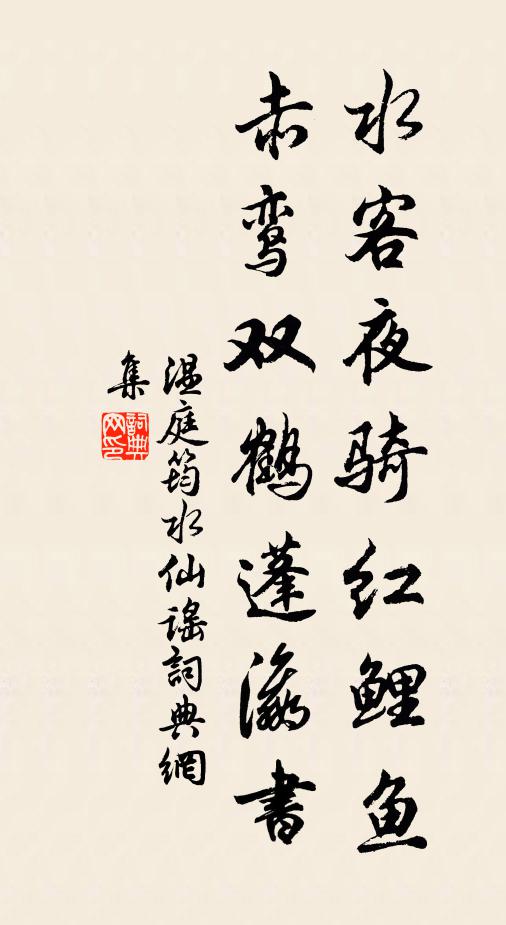 水客夜骑红鲤鱼
赤鸾双鹤蓬瀛書
温庭筠水仙谣詞典網
集
詞典
网印